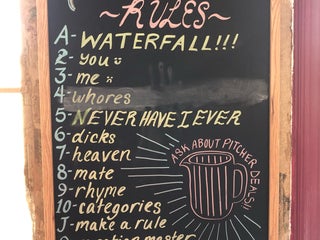 ~RULES~
A- WATERFALL!!!
2- you
3- me
4- whores
5- NEVER HAVE I EVER
6- dicks
7- heaven
8- mate
9- rhyme
10- categories
J- make a rule
ASK ABOUT PITCHER DEALS!!